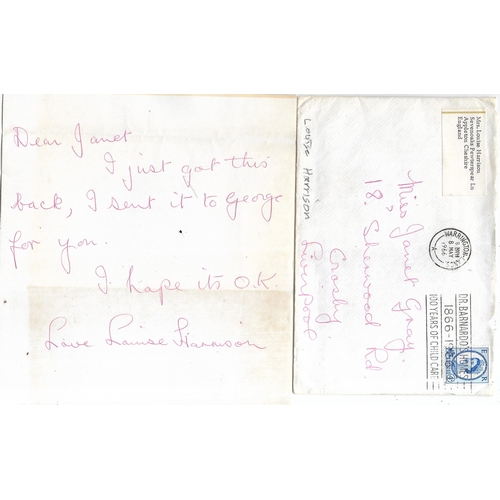 Dear Janet
I just got this
back, I sent it to George
for you.
I hope its O.K.
Love Louise Harrison
Louise Harrison
Mrs. Louise Harrison
Sevenoaks Pewterspear Ln
Appleton Cheshire
England
Miss, Janet Gray.
18. Sherwood Rd.
Crosby
Liverpool
WARRINGTON
8 MAY
1966
A
DR. BARNARDO'S
1866-1966
100 YEARS OF CHILD CARE
E R